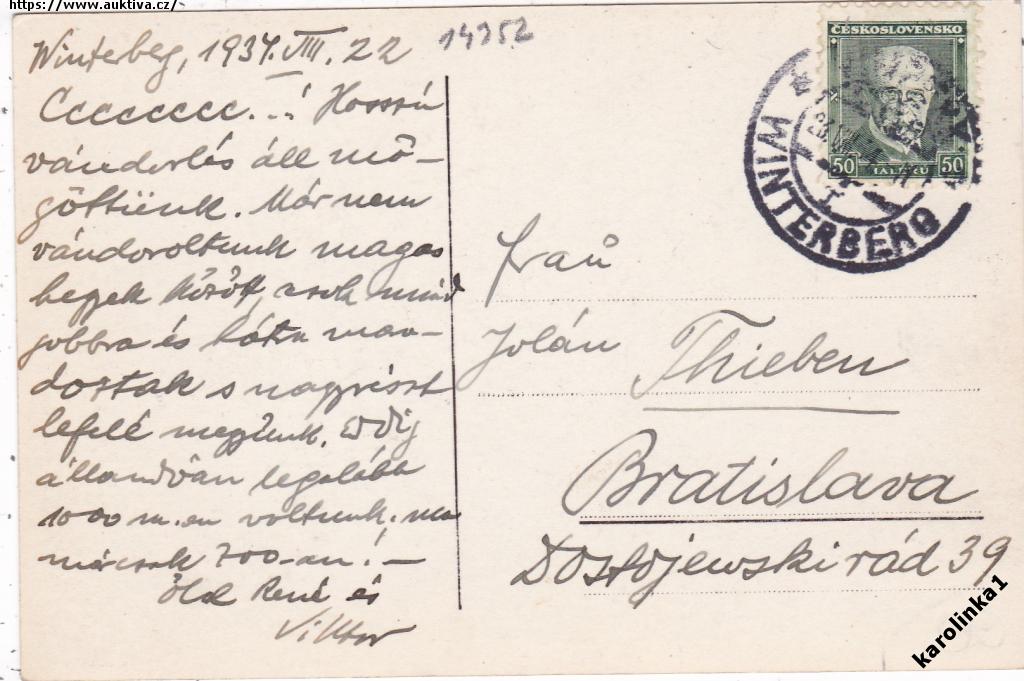 https://www.auktiva.cz/
Winterbeg, 1934. VIII. 22
14352
Ccccccccc...! Hosszú
vándorlás áll mö-
göttünk. Már nem
vándoroltunk magas
hegyek között, azok mind
jobbra és hátra marad-
toztak s nagyrészt
lefelé megyünk. Eddig
állandóan legalább
1000 m.-en voltunk. ma
már csak 700-an! -
Ölel René és
Viktor
ČESKOSLOVENSKO
50
50
HALÉŘŮ
WINTERBERG
Frau
Jolán Thieben
Bratislava
Dostojewski rád 39
karolinka1